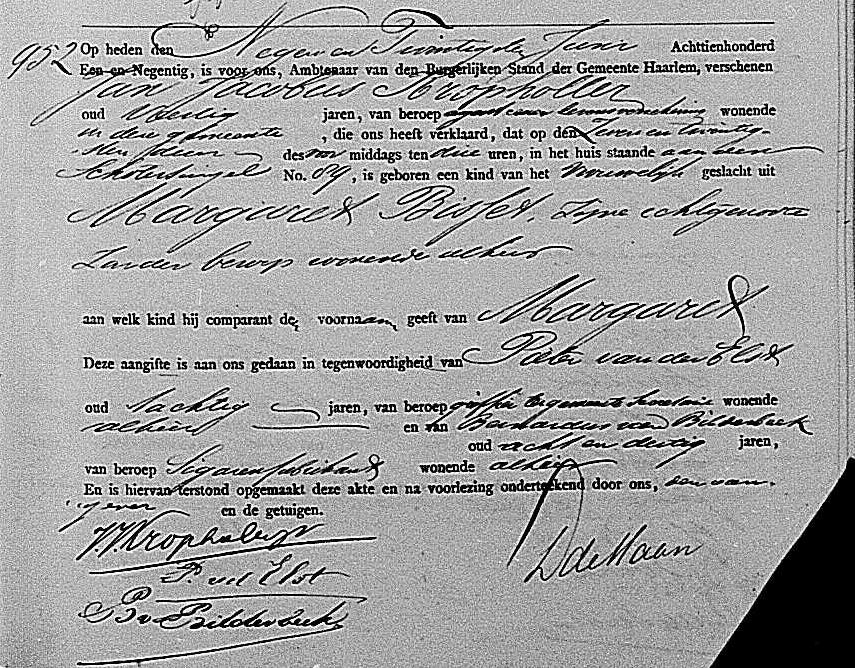 952 Op heden den Negen en Twintigsten Junij Achttienhonderd
Een en Negentig, is voor ons, Ambtenaar van den Burgerlijken Stand der Gemeente Haarlem, verschenen
Jan Jacobus Kropholler
oud Veertig jaren, van beroep agent eener wonende
in deze gemeente, die ons heeft verklaard, dat op den Zeven en twintig-
sten dezer des voor middags ten drie uren, in het huis staande aan den
Schotersingel No. 89, is geboren een kind van het vrouwelijk geslacht uit
Margaret Bisset, zijne echtgenoote
Zonder beroep wonende alhier
aan welk kind hij comparant de voornaam geeft van Margaret
Deze aangifte is aan ons gedaan in tegenwoordigheid van Pieter van der Elst
oud Tachtig jaren, van beroep griffier ter gemeente secretarie wonende
alhier en van Bernardus van Bilderbeek
oud acht en dertig jaren,
van beroep Sigarenfabrikant wonende alhier
En is hiervan terstond opgemaakt deze akte en na voorlezing onderteekend door ons, den aan-
gever en de getuigen.
J.J. Kropholler
P. vd Elst
B v Bilderbeek
D de Haan